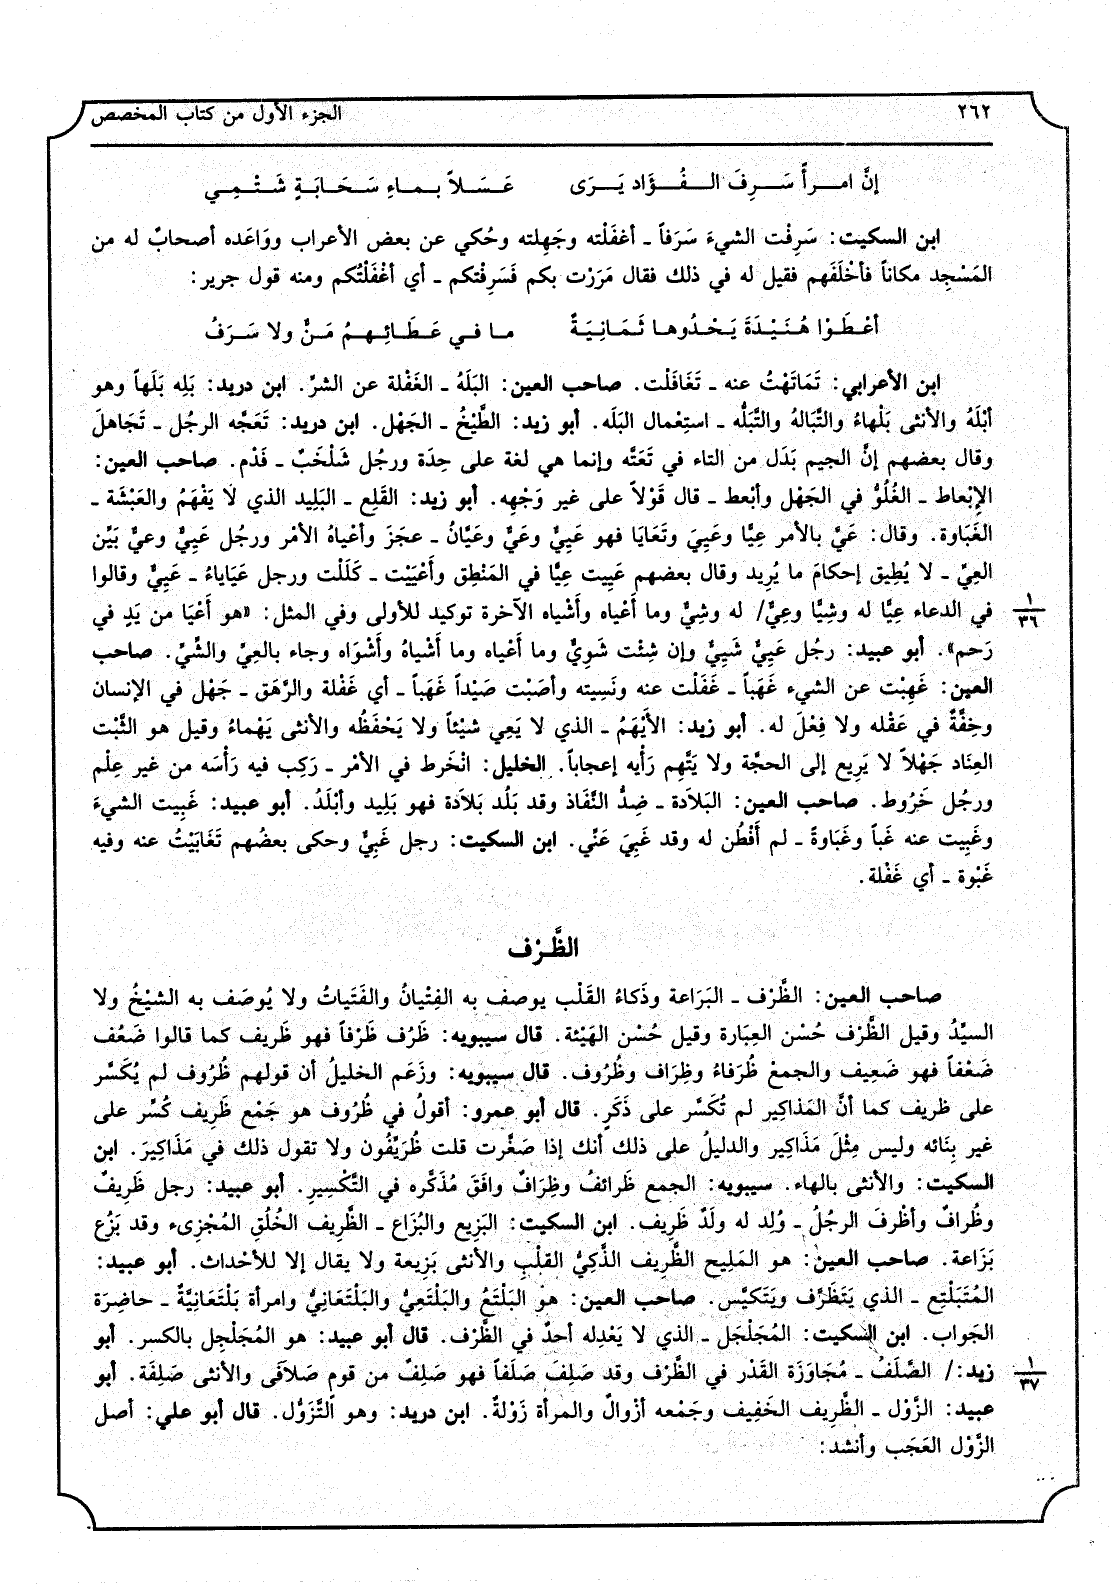 ٢٦٢ الجزء الأول من كتاب المخصص
إنَّ امرأً سَرِفَ الفُؤَاد يَرَى عَسَلاً بماءِ سَحَابَةٍ شَتْمِي
ابن السكيت: سَرِفْت الشيءَ سَرَفاً ـ أغفَلْته وجَهِلته وحُكي عن بعض الأعراب ووَاعَده أصحابٌ له من
المَسْجِد مكاناً فأخْلَفَهم فقيل له في ذلك فقال مَرَرْت بكم فَسَرِفْتكم ـ أي أغْفَلْتُكم ومنه قول جرير:
أعْطَوْا هُنَيْدَةَ يَحْدُوها ثَمَانِيَةٌ ما في عَطَائِهمُ مَنٌّ ولا سَرَفُ
ابن الأعرابي: تَمَاتَهْتُ عنه ـ تَغَافَلْت. صاحب العين: البَلَهُ ـ الغَفْلة عن الشرِّ. ابن دريد: بَلِه بَلَهاً وهو
أبْلَهُ والأنثى بَلْهاءُ والتَّبَالهُ والتَّبَلُّه ـ استِعْمال البَلَه. أبو زيد: الطَّيْخُ ـ الجَهْل. ابن دريد: تَعَجَّه الرجُل ـ تَجَاهلَ
وقال بعضهم إنَّ الجيم بَدَل من التاء في تَعَتَّه وإنما هي لغة على حِدَة ورجُل شَلْخَبٌ ـ فَدْم. صاحب العين:
الإبْعاط ـ الغُلُوُّ في الجَهْل وأبْعط ـ قال قَوْلاً على غير وَجْهِه. أبو زيد: القَلِع ـ البَلِيد الذي لَا يَفْهَمُ والعَبْشَة ـ
الغَبَاوة. وقال: عَيَّ بالأمر عِيًّا وعَيِيَ وتَعَايَا فهو عَيِيٌّ وعَيٌّ وعَيَّانُ ـ عجَزَ وأعْياهُ الأمْر ورجُل عَيِيٌّ وعيٌّ بَيِّن
العِيِّ ـ لا يُطِيق إحكامَ ما يُرِيد وقال بعضهم عَيِيت عِيًّا في المَنْطِق وأَعْيَيْت ـ كَلَلْت ورجل عَيَاياءُ ـ عَيِيٌّ وقالوا
في الدعاء عِيًّا له وشِيًّا وعِيٌّ/ له وشِيٌّ وما أعْياه وأشْياه الآخرة توكيد للأولى وفي المثل: «هو أعْيَا من يَدٍ في
١
٣٦
رَحم». أبو عبيد: رجُل عَيِيٌّ شَيِيٌّ وإن شِئْت شَوِيٌّ وما أعْياه وما أشْياهُ وأشْوَاه وجاء بالعِيِّ والشِّيِّ. صاحب
العين: غَهِبْت عن الشيء غَهَباً ـ غَفَلْت عنه ونَسِيته وأصَبْت صَيْداً غَهَباً ـ أي غَفْلة والرَّهَق ـ جَهْل في الإنسان
وخِفَّةٌ في عَقْله ولا فِعْلَ له. أبو زيد: الأَيْهَمُ ـ الذي لا يَعِي شيْئاً ولا يَحْفَظُه والأنثى يَهْماءُ وقيل هو الثَّبْت
العِنَاد جَهْلاً لا يَرِيع إلى الحجَّة ولا يَتَّهِم رَأْيه إعجاباً. الخليل: انْخَرط في الأمْر ـ رَكِب فيه رَأْسَه من غير عِلْم
ورجُل خَرُوط. صاحب العين: البَلَادة ـ ضِدُّ النَّفَاذ وقد بَلُد بَلَادَة فهو بَلِيد وأبْلَدُ. أبو عبيد: غَبِيت الشيءَ
وغَبِيت عنه غَباً وغَبَاوةً ـ لم أَفْطُن له وقد غَبِيَ عَنِّي. ابن السكيت: رجل غَبِيٌّ وحكى بعضُهم تَغَابَيْتُ عنه وفيه
غَبْوة ـ أي غَفْلة.
الظَّرْف
صاحب العين: الظَّرْف ـ البَرَاعة وذَكاءُ القَلْب يوصف به الفِتْيانُ والفَتَيَاتُ ولا يُوصَف به الشيْخُ ولا
السيِّدُ وقيل الظَّرْف حُسْن العِبَارة وقيل حُسْن الهَيْئة. قال سيبويه: ظَرُف ظَرْفاً فهو ظَريف كما قالوا ضَعُف
ضَعْفاً فهو ضَعِيف والجمعُ ظُرَفاءُ وظِرَاف وظُرُوف. قال سيبويه: وزَعَم الخليلُ أن قولهم ظُرُوف لم يُكَسَّر
على ظريف كما أنَّ المَذاكِير لم تُكَسَّر على ذَكَرٍ. قال أبو عمرو: أقولُ في ظُرُوف هو جَمْع ظَرِيف كُسِّر على
غير بِنَائه وليس مِثْلَ مَذَاكِير والدليلُ على ذلك أنك إذا صَغَّرت قلت ظُرَيِّفُون ولا تقول ذلك في مَذَاكِيرَ. ابن
السكيت: والأنثى بالهاء. سيبويه: الجمع ظَرائفُ وظِرَافٌ وافَق مُذَكَّره في التَّكْسِيرِ. أبو عبيد: رجل ظَرِيفٌ
وظُرافٌ وأظْرفَ الرجُلُ ـ وُلِد له ولَدٌ ظَرِيف. ابن السكيت: البَزِيع والبُزَاع ـ الظَّرِيف الخُلُقِ المُجْزِىء وقد بَزُع
بَزَاعة. صاحب العين: هو المَلِيح الظَّرِيف الذَّكِيُّ القلْبِ والأنثى بَزِيعة ولا يقال إلا للأحْداث. أبو عبيد:
المُتَبَلْتِع ـ الذي يَتَظَرَّف ويَتَكيَّس. صاحب العين: هو البَلْتَعُ والبَلْتَعِيُّ والبَلْتَعَانِيُّ وامرأة بَلْتَعَانِيَّةٌ ـ حاضِرَة
الجَواب. ابن السكيت: المُجَلْجَل ـ الذي لا يَعْدِله أحدٌ في الظَّرْف. قال أبو عبيد: هو المُجَلْجِل بالكسر. أبو
زيد:/ الصَّلَفُ ـ مُجَاوَزَة القَدْر في الظَّرْف وقد صَلِفَ صَلَفاً فهو صَلِفٌ من قوم صَلَافَى والأنثى صَلِفَة. أبو
١
٣٧
عبيد: الزَّوْل ـ الظَّرِيف الخَفِيف وجَمْعه أزْوالٌ والمرأة زَوْلةٌ. ابن دريد: وهو التَّزَوُّل. قال أبو علي: أصل
الزَّوْل العَجَب وأنشد: